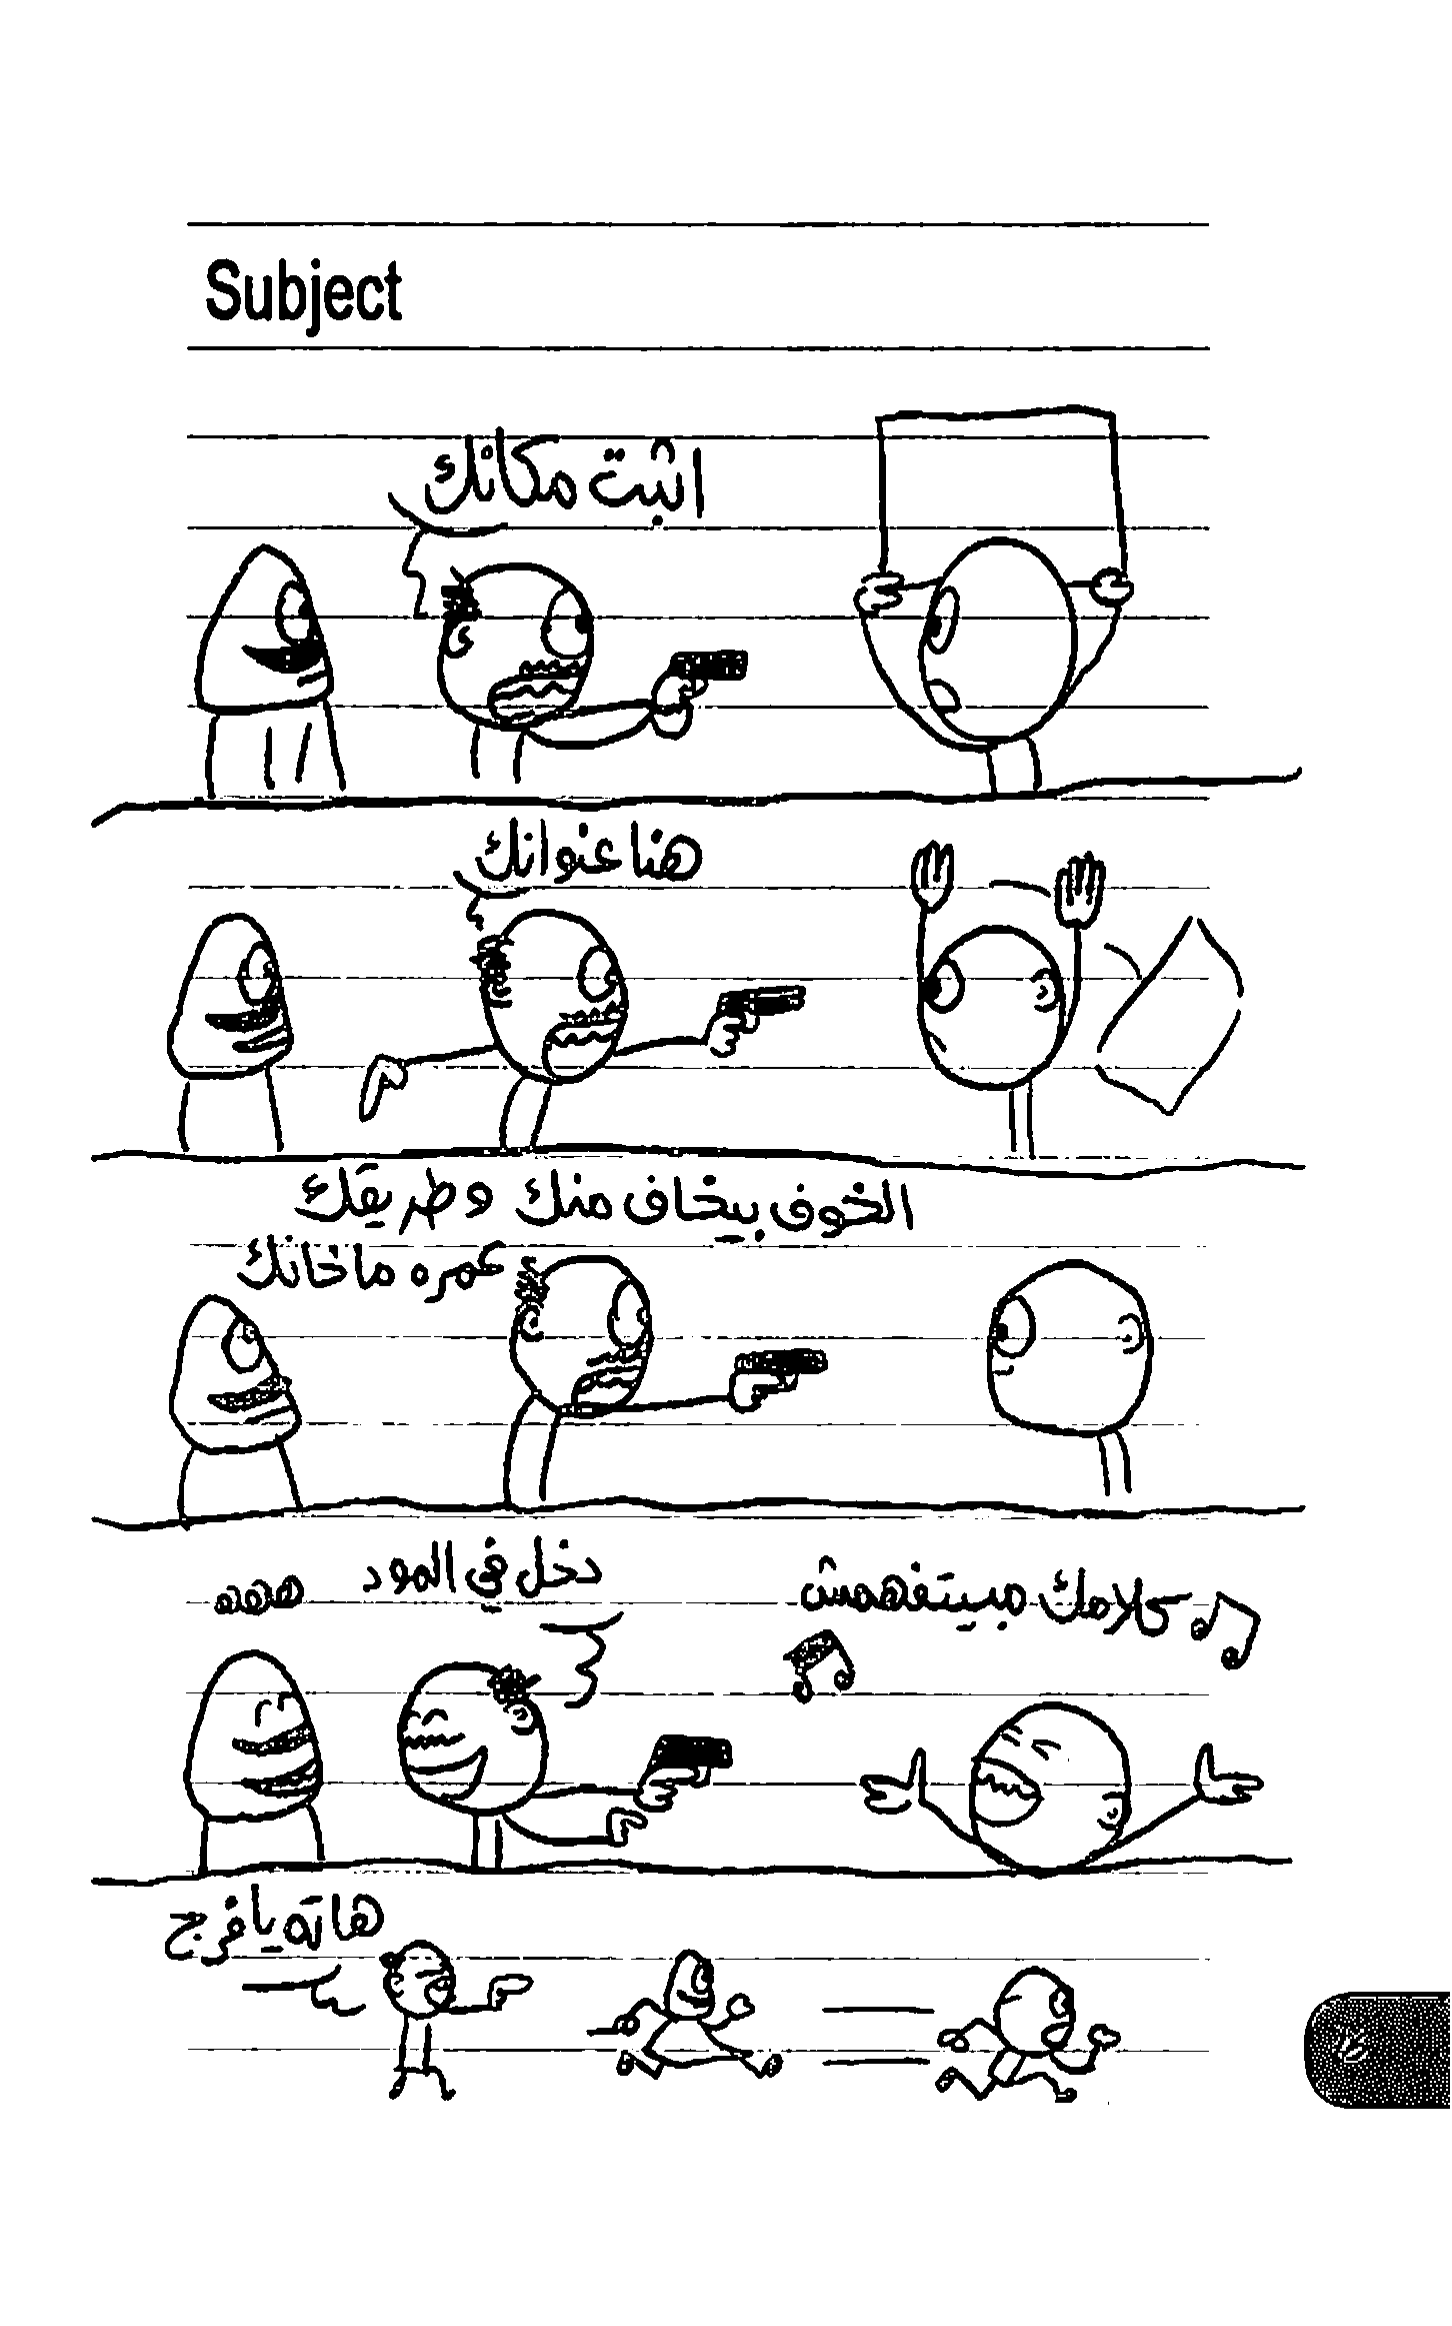 Subject
اثبت مكانك
هنا عنوانك
الخوف بيخاف منك وطريقك
عمره ما خانك
كلامك مبيتفهمش
دخل في المود
هههه
هاته يا فرج